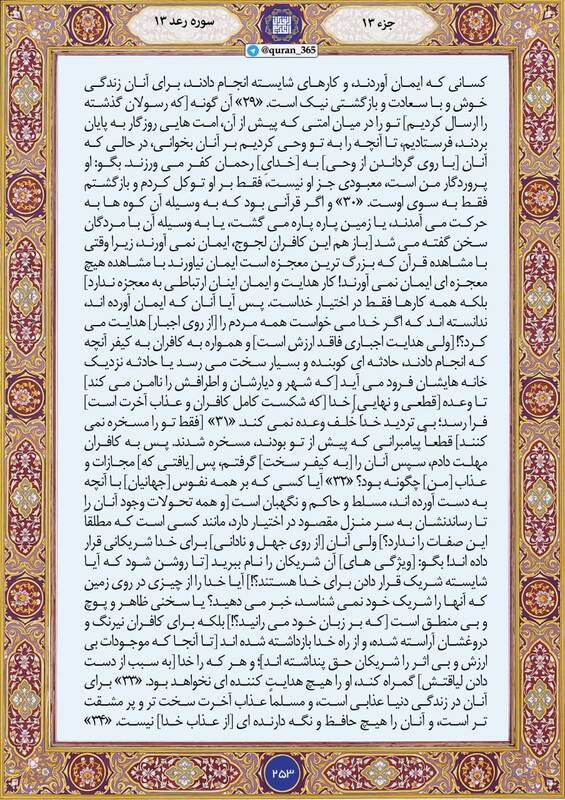 جزء ۱۳
سوره رعد ۱۳
@quran_365
کسانی که ایمان آوردند، و کارهای شایسته انجام دادند، برای آنان زندگی
خوش و با سعادت و بازگشتی نیک است. «۲۹» آن گونه [که رسولان گذشته
را ارسال کردیم] تو را در میان امتی که پیش از آن، امت هایی روزگار به پایان
بردند، فرستادیم، تا آنچه را به تو وحی کردیم بر آنان بخوانی، در حالی که
آنان [با روی گرداندن از وحی] به [خدایِ] رحمان کفر می ورزند. بگو: او
پروردگار من است، معبودی جز او نیست، فقط بر او توکل کردم و بازگشتم
فقط به سوی اوست. «۳۰» و اگر قرآنی بود که به وسیله آن کوه ها به
حرکت می آمدند، یا زمین پاره پاره می گشت، یا به وسیله آن با مردگان
سخن گفته می شد [باز هم این کافران لجوج، ایمان نمی آورند، زیرا وقتی
با مشاهده قرآن که بزرگ ترین معجزه است ایمان نیاورند با مشاهده هیچ
معجزه ای ایمان نمی آورند! کار هدایت و ایمان اینان ارتباطی به معجزه ندارد]
بلکه همه کارها فقط در اختیار خداست. پس آیا آنان که ایمان آورده اند،
ندانسته اند که اگر خدا می خواست همه مردم را [از روی اجبار] هدایت می
کرد؟! [ولی هدایت اجباری فاقد ارزش است] و همواره به کافران به کیفر آنچه
که انجام دادند، حادثه ای کوبنده و بسیار سخت می رسد یا حادثه نزدیک
خانه هایشان فرود می آید [که شهر و دیارشان و اطرافش را ناامن می کند]
تا وعده [قطعی و نهاییِ] خدا [که شکست کامل کافران و عذاب آخرت است]
فرا رسد؛ بی تردید خدا خُلف وعده نمی کند. «۳۱» [فقط تو را مسخره نمی
کنند] قطعاً پیامبرانی که پیش از تو بودند، مسخره شدند. پس به کافران
مهلت دادم، سپس آنان را [به کیفر سخت] گرفتم، پس [یافتی که] مجازات و
عذاب [من] چگونه بود؟ «۳۲» آیا کسی که بر همه نفوس [جهانیان] با آنچه
به دست آورده اند، مسلط و حاکم و نگهبان است [و همه تحولات وجود آنان را
تا رساندنشان به سر منزل مقصود در اختیار دارد، مانند کسی است که مطلقاً
این صفات را ندارد؟] ولی آنان [از روی جهل و نادانی] برای خدا شریکانی قرار
داده اند! بگو: [ویژگی های] آن شریکان را نام ببرید [تا روشن شود که آیا
شایسته شریک قرار دادن برای خدا هستند؟!] آیا خدا را از چیزی در روی زمین
که آنها را شریک خود نمی شناسد، خبر می دهید؟ یا سخنی ظاهر و پوچ
و بی منطق است [که بر زبان خود می رانید؟!] بلکه برای کافران نیرنگ و
دروغشان آراسته شده، و از راه خدا بازداشته شده اند [تا آنجا که موجودات بی
ارزش و بی اثر را شریکان حق پنداشته اند]؛ و هر که را خدا [به سبب از دست
دادن لیاقتش] گمراه کند، او را هیچ هدایت کننده ای نخواهد بود. «۳۳» برای
آنان در زندگی دنیا عذابی است، و مسلماً عذاب آخرت سخت تر و پر مشقت
تر است، و آنان را هیچ حافظ و نگه دارنده ای [از عذاب خدا] نیست. «۳۴»
۲۵۳